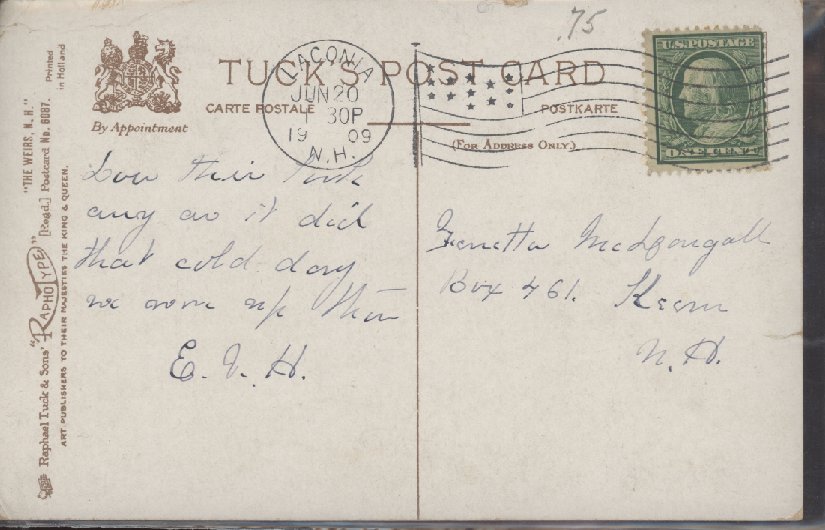 .75
U.S. POSTAGE
ONE CENT
TUCK'S POST CARD
CARTE POSTALE
POSTKARTE
(FOR ADDRESS ONLY.)
By Appointment
LACONIA
JUN 20
30P
1909
N.H.
"THE WEIRS, N. H."
Printed in Holland
Raphael Tuck & Sons' "RAPHOTYPE" [Regd.] Postcard No. 6087.
ART PUBLISHERS TO THEIR MAJESTIES THE KING & QUEEN.
any as it did
that cold day
we were up
E. V. H.
McDougall
Box 461. Keene
N. H.